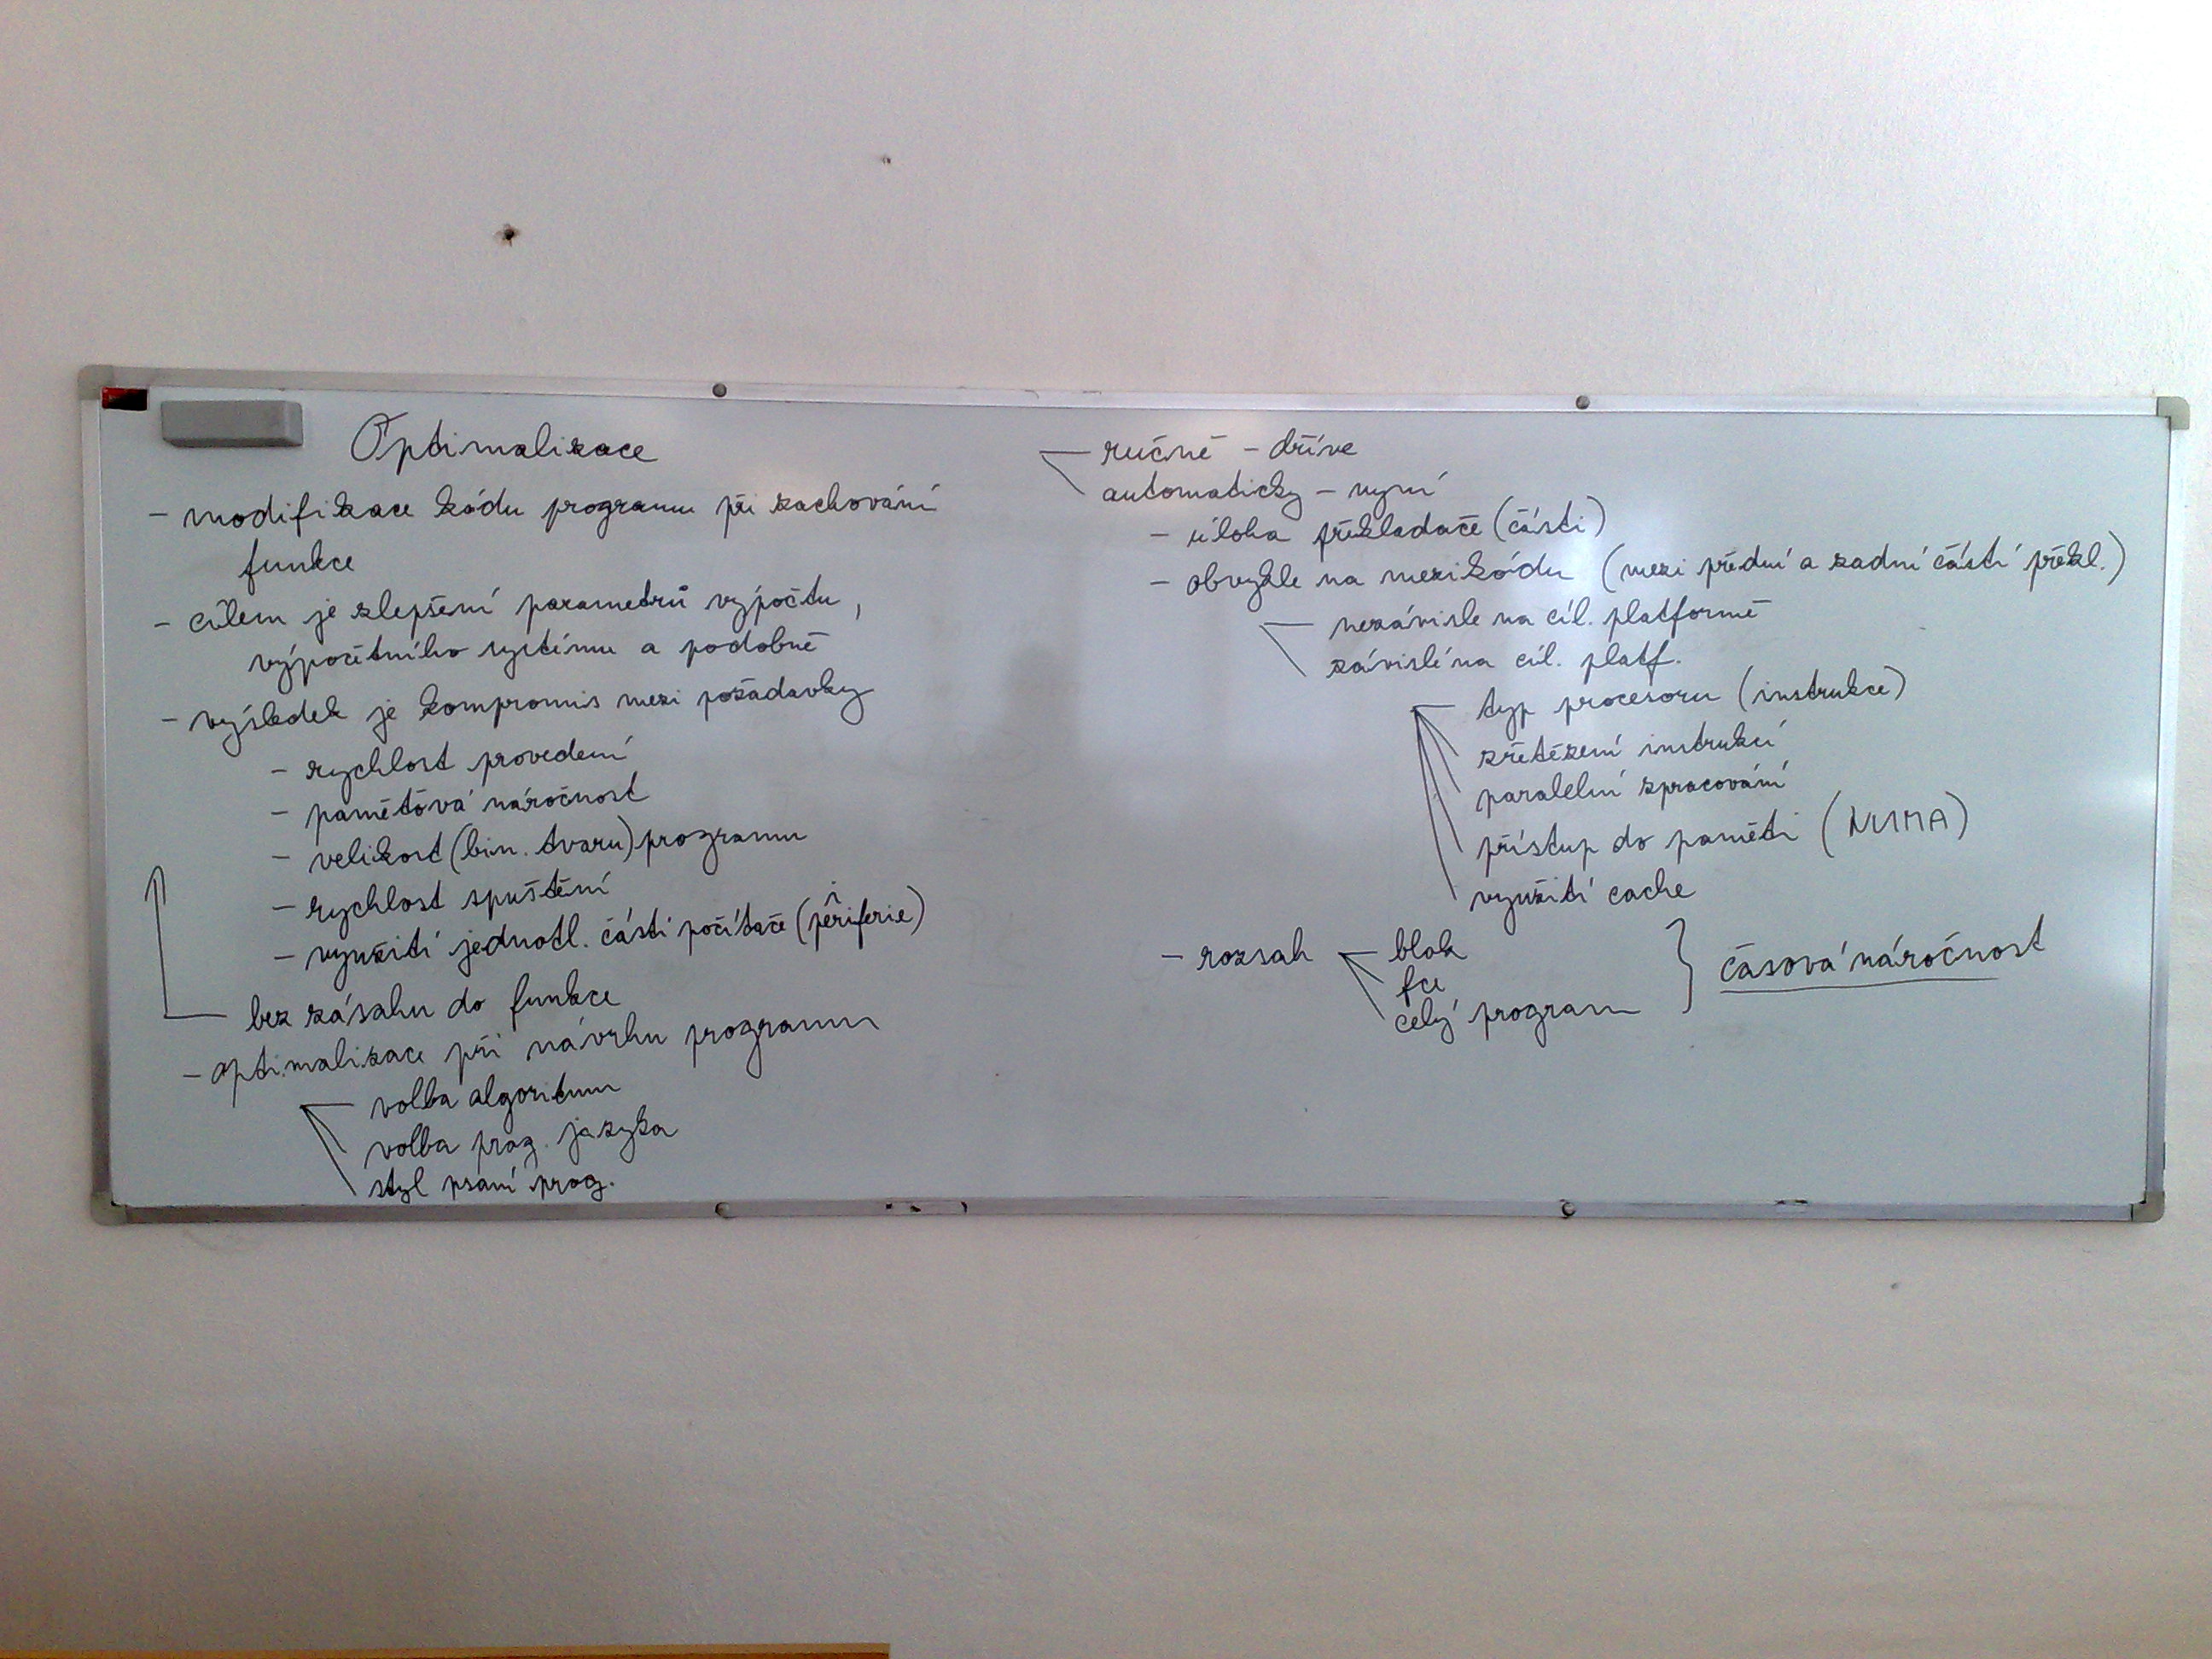 Optimalizace
- modifikace kódu programu při zachování
funkce
- cílem je zlepšení parametrů výpočtu,
výpočetního systému a podobně
- výsledek je kompromis mezi požadavky
- rychlost provedení
- paměťová náročnost
- velikost (bin. tvaru) programu
- rychlost spuštění
- využití jednotl. částí počítače (periferie)
bez zásahu do funkce
- optimalizace při návrhu programu
volba algoritmu
volba prog. jazyka
styl psaní prog.
ručně - dříve
automaticky - nyní
- úloha překladače (části)
- obvykle na mezikódu (mezi přední a zadní částí překl.)
nezávisle na cíl. platformě
závislé na cíl. platf.
typ procesoru (instrukce)
zřetězení instrukcí
paralelní zpracování
přístup do paměti (NUMA)
využití cache
- rozsah
blok
fce
celý program
časová náročnost